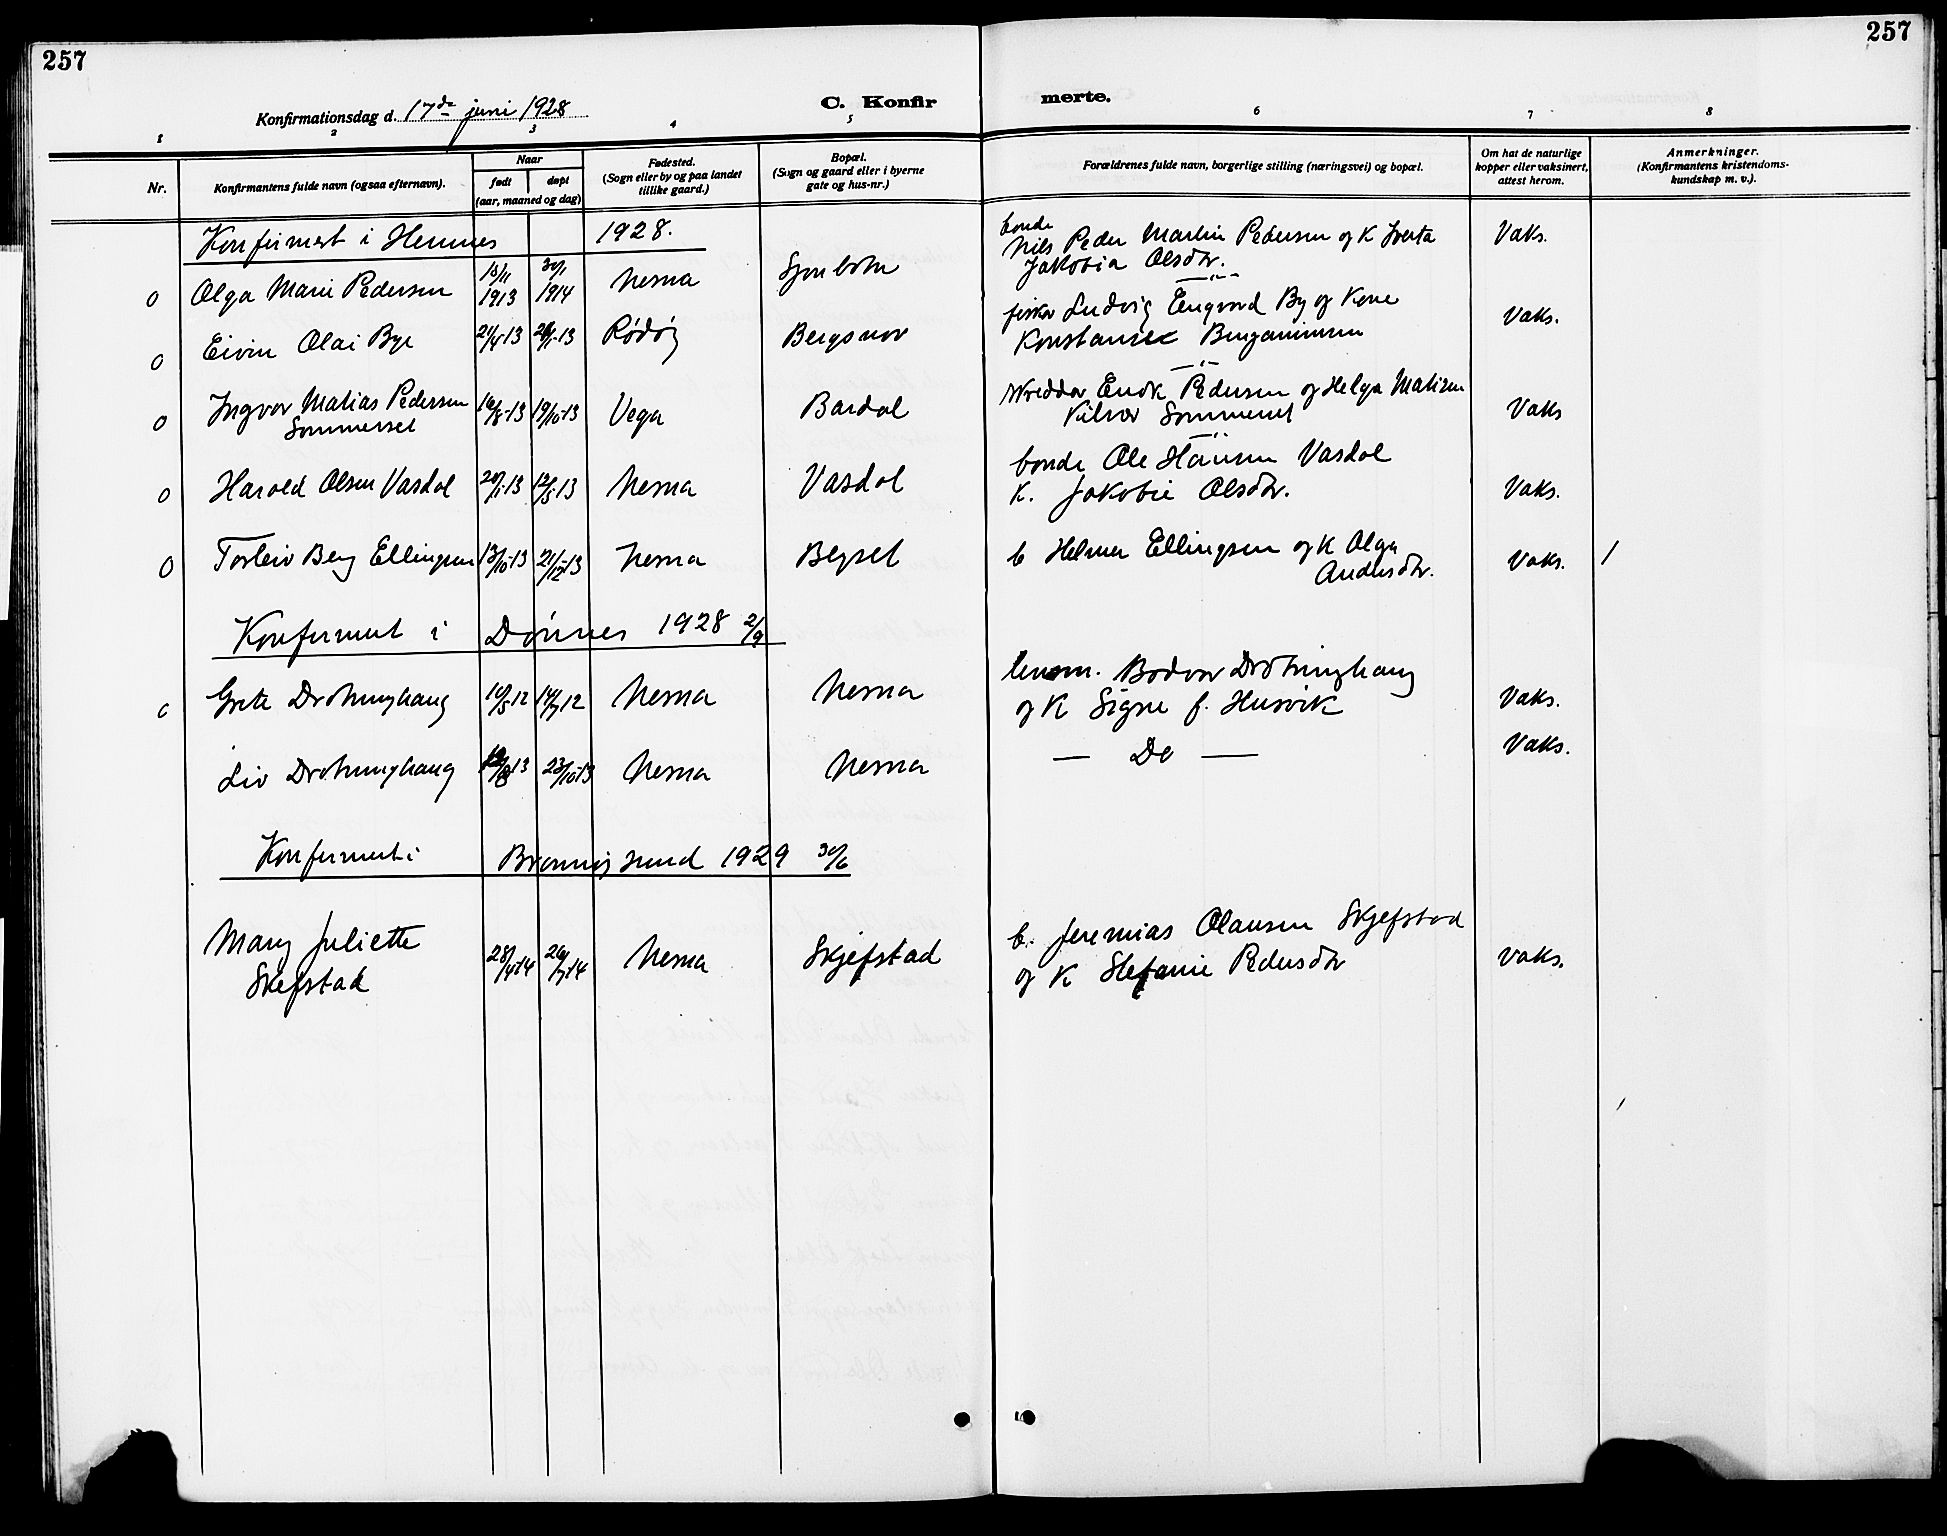 257
257
Konfirmationsdag d. 17de juni 1928
C. Konfir
merte.
1 2 3 4 5
6 7 8
Nr.
Konfirmantens fulde navn (ogsaa efternavn).
Naar
født
døpt
(aar, maaned og dag)
Fødested.
(Sogn eller by og paa landet
tillike gaard.)
Bopæl.
(Sogn og gaard eller i byerne
gate og hus-nr.)
Forældrenes fulde navn, borgerlige stilling (næringsvei) og bopæl.
Om hat de naturlige
kopper eller vaksinert,
attest herom.
Anmerkninger.
(Konfirmantens kristendoms-
kundskap m. v.).
Konfirmert i Hemnes 1928.
bonde
0 Olga Marie Pedersen 15/11 1913 30/1 1914 Nesna Sjonbotn Nils Peder Martin Pedersen og K Iverta Vaks.
Jakobia Olsdtr.
0 Eivin Olai Bye 21/4-13 Rødøy fisker Ludvig By og Kone Vaks.
Konstanse Benjaminsen
0 Ingvar Matias Pedersen 16/8-13 19/10-13 Vega Bardal Pedersen og Helga Matisen Vaks
Sommerset
Sommerset
0 Harald Olsen Vasdal 20/1-13 12/5-13 Nesna Vasdal bonde Ole Hansen Vasdal
K. Jakobie Olsdtr. Vaks.
0 Torleiv Berg Ellingsen 13/10-13 21/12-13 Nesna b Helmer Ellingsen og K Olga Vaks. /
Andersdtr.
Konfirmert i Dønnes 1928 2/9
Grete Drotninghaug 10/5 12 14/7 12 Nesna Nesna lensm. Bodvar Drotninghaug
og K Signe f. Husvik Vaks.
Liv Drotninghaug 23/10-13 Nesna Nesna — Do — Vaks.
Konfirmert i Brønnøysund 1929 30/6
Mary Juliette 28/4-14 26/7-14 Nesna Skjefstad b. Jeremias Olausen Skjefstad
Skefstad og K Stefanie Pedersdtr Vaks.